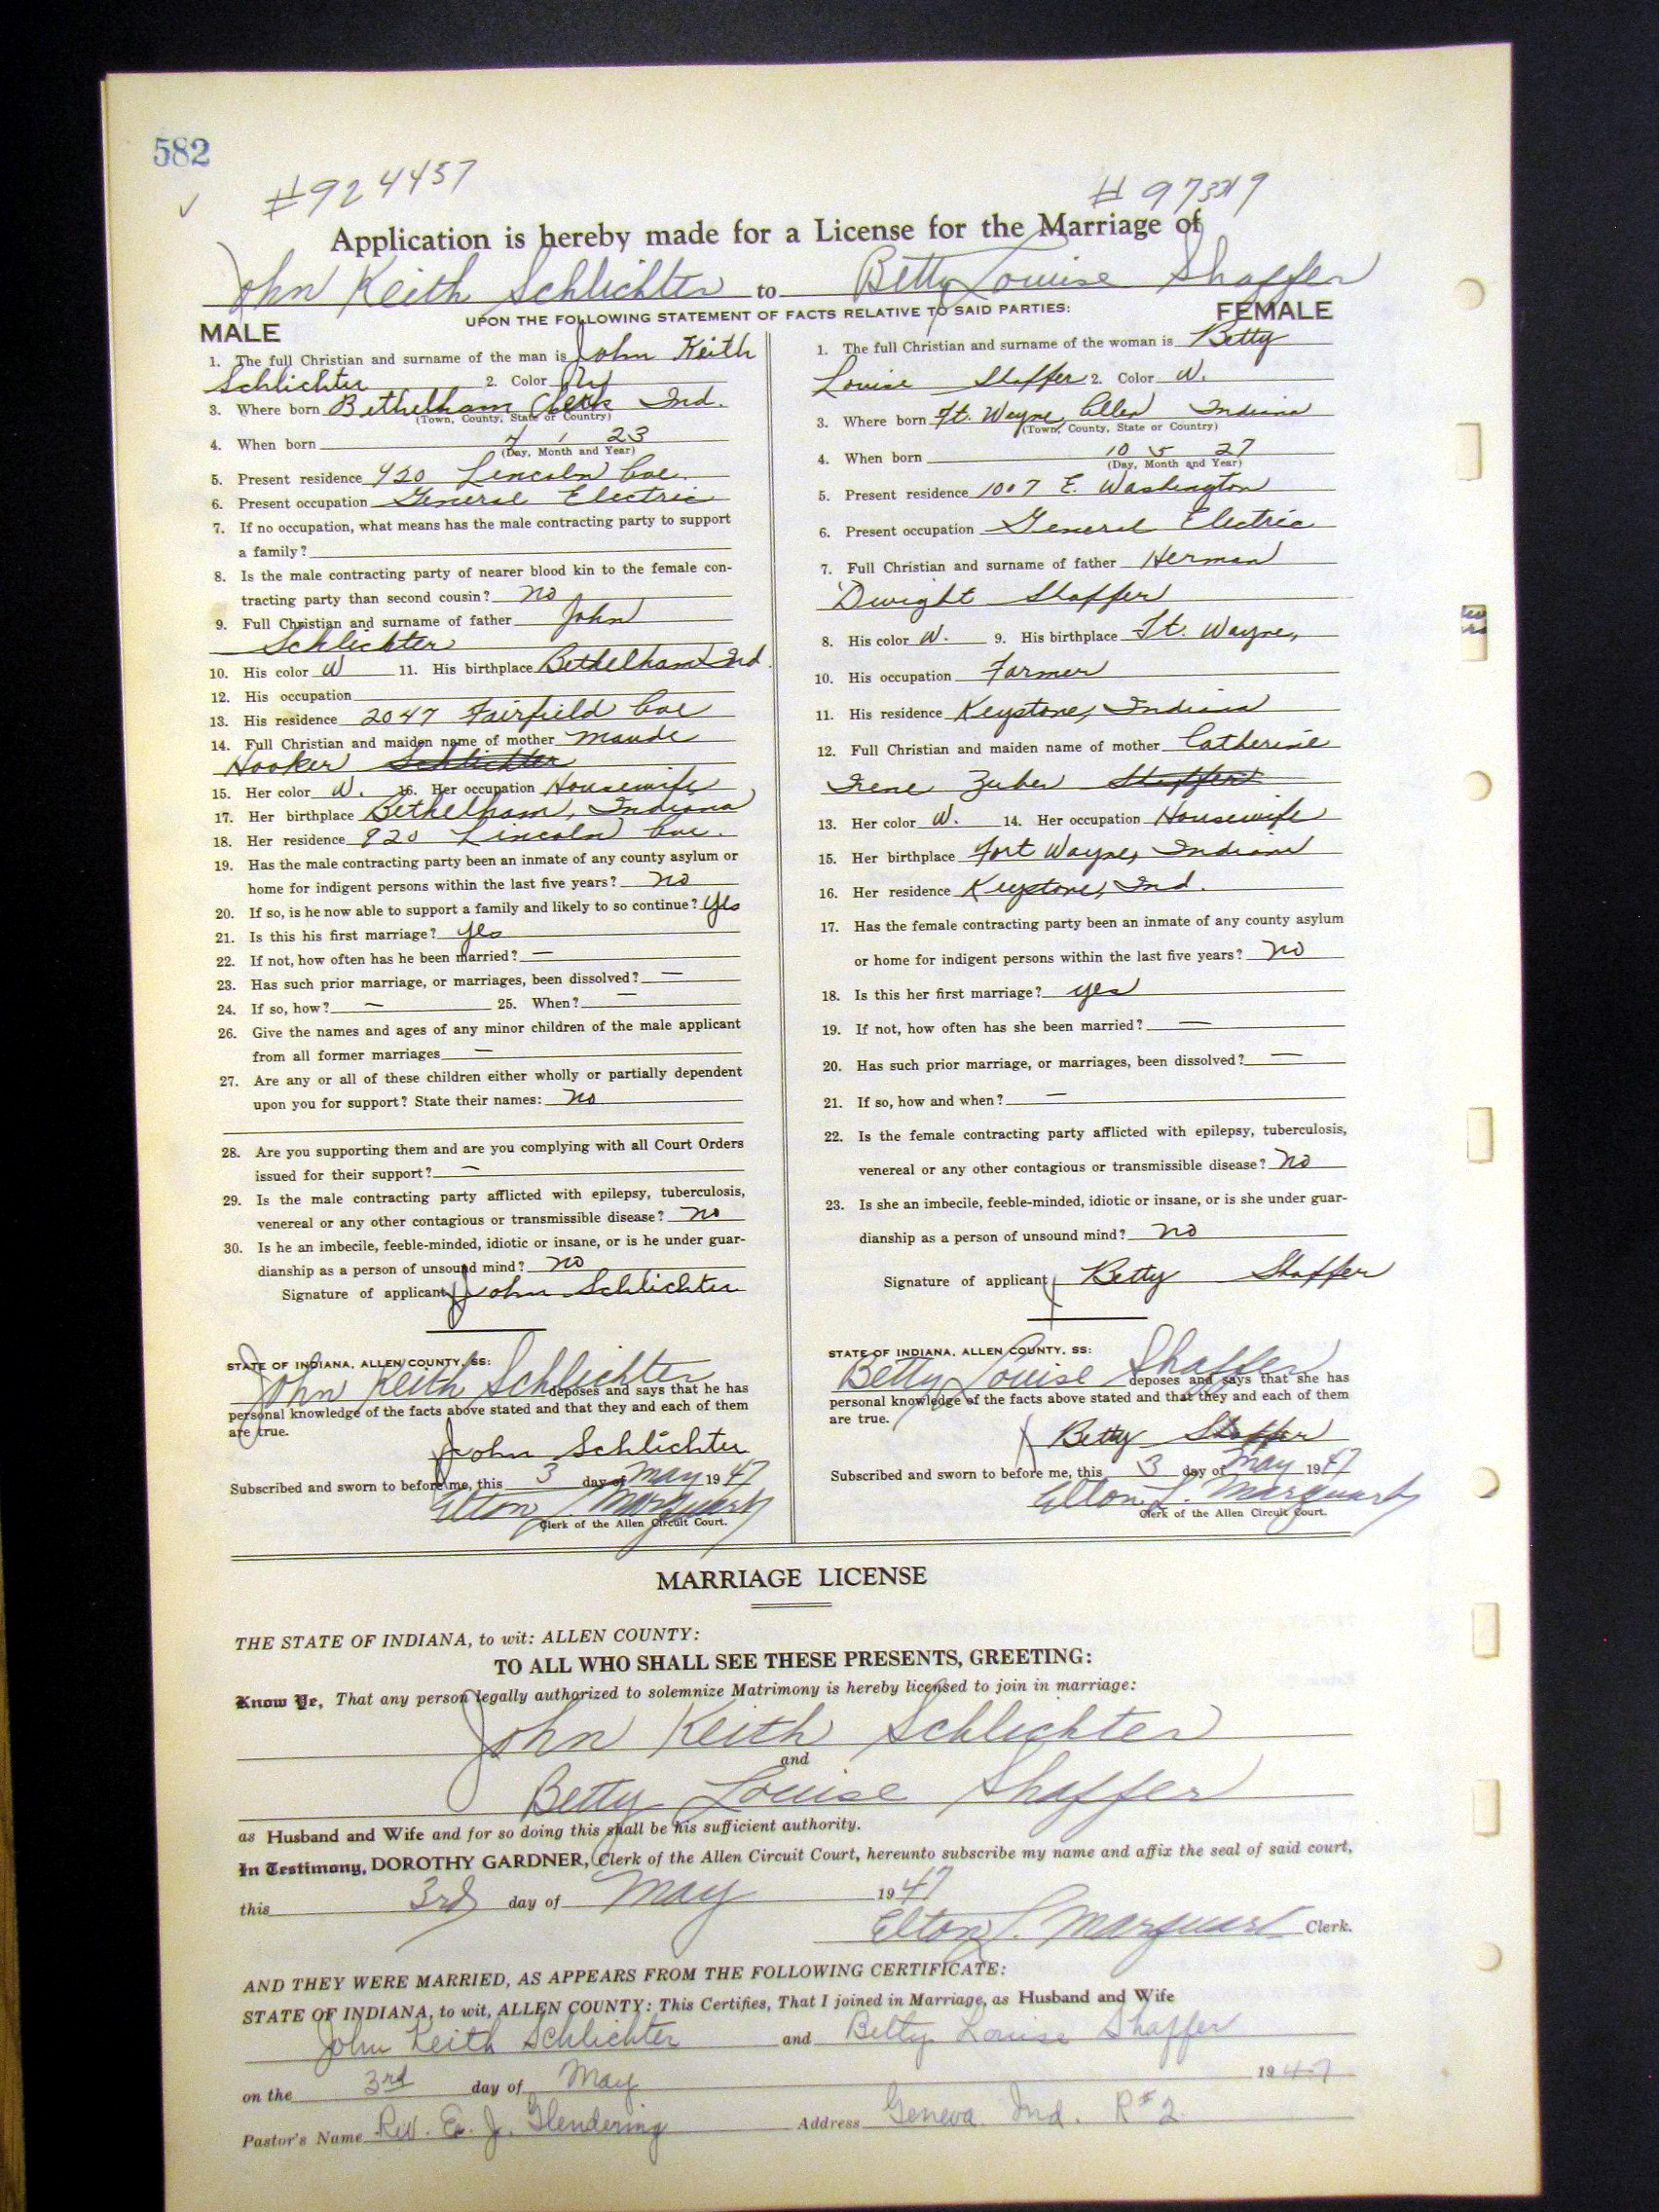 582
#924457
Application is hereby made for a License for the Marriage of
John Keith Schlichter to Betty Louise Shaffer
UPON THE FOLLOWING STATEMENT OF FACTS RELATIVE TO SAID PARTIES:
MALE
1. The full Christian and surname of the man is John Keith
Schlichter 2. Color W
3. Where born Bethelham Clark Ind.
(Town, County, State or Country)
4. When born 1 23
(Day, Month and Year)
5. Present residence 920 Lincoln Ave.
6. Present occupation General Electric
7. If no occupation, what means has the male contracting party to support
a family?
8. Is the male contracting party of nearer blood kin to the female con-
tracting party than second cousin? no
9. Full Christian and surname of father John
Schlichter
10. His color W 11. His birthplace Bethelham Ind.
12. His occupation
13. His residence 2047 Fairfield Ave
14. Full Christian and maiden name of mother Maude
Hooker Schlichter
15. Her color W. 16. Her occupation Housewife
17. Her birthplace Bethelham, Indiana
18. Her residence 920 Lincoln Ave.
19. Has the male contracting party been an inmate of any county asylum or
home for indigent persons within the last five years? no
20. If so, is he now able to support a family and likely to so continue? yes
21. Is this his first marriage? yes
22. If not, how often has he been married? —
23. Has such prior marriage, or marriages, been dissolved? —
24. If so, how? — 25. When? —
26. Give the names and ages of any minor children of the male applicant
from all former marriages —
27. Are any or all of these children either wholly or partially dependent
upon you for support? State their names: no
28. Are you supporting them and are you complying with all Court Orders
issued for their support? —
29. Is the male contracting party afflicted with epilepsy, tuberculosis,
venereal or any other contagious or transmissible disease? no
30. Is he an imbecile, feeble-minded, idiotic or insane, or is he under guar-
dianship as a person of unsound mind? no
Signature of applicant John Schlichter
STATE OF INDIANA, ALLEN COUNTY, SS:
John Keith Schlichter deposes and says that he has
personal knowledge of the facts above stated and that they and each of them
are true.
John Schlichter
Subscribed and sworn to before me, this 3 day of May 1947
Elton L. Marquart
Clerk of the Allen Circuit Court.
FEMALE
1. The full Christian and surname of the woman is Betty
Louise Shaffer 2. Color W.
3. Where born Ft. Wayne, Allen Indiana
(Town, County, State or Country)
4. When born 10 5 27
(Day, Month and Year)
5. Present residence 1007 E. Washington
6. Present occupation General Electric
7. Full Christian and surname of father Herman
Dwight Shaffer
8. His color W. 9. His birthplace Ft. Wayne,
10. His occupation Farmer
11. His residence Keystone, Indiana
12. Full Christian and maiden name of mother Catherine
Irene Zuber Shaffer
13. Her color W. 14. Her occupation Housewife
15. Her birthplace Fort Wayne, Indiana
16. Her residence Keystone, Ind.
17. Has the female contracting party been an inmate of any county asylum
or home for indigent persons within the last five years? no
18. Is this her first marriage? yes
19. If not, how often has she been married? —
20. Has such prior marriage, or marriages, been dissolved? —
21. If so, how and when? —
22. Is the female contracting party afflicted with epilepsy, tuberculosis,
venereal or any other contagious or transmissible disease? no
23. Is she an imbecile, feeble-minded, idiotic or insane, or is she under guar-
dianship as a person of unsound mind? no
Signature of applicant Betty Shaffer
STATE OF INDIANA, ALLEN COUNTY, SS:
Betty Louise Shaffer deposes and says that she has
personal knowledge of the facts above stated and that they and each of them
are true.
Betty Shaffer
Subscribed and sworn to before me, this 3 day of May 1947
Elton L. Marquart
Clerk of the Allen Circuit Court.
MARRIAGE LICENSE
THE STATE OF INDIANA, to wit: ALLEN COUNTY:
TO ALL WHO SHALL SEE THESE PRESENTS, GREETING:
Know Ye, That any person legally authorized to solemnize Matrimony is hereby licensed to join in marriage:
John Keith Schlichter
and
Betty Louise Shaffer
as Husband and Wife and for so doing this shall be his sufficient authority.
In Testimony, DOROTHY GARDNER, Clerk of the Allen Circuit Court, hereunto subscribe my name and affix the seal of said court,
this 3rd day of May 1947
Elton L. Marquart Clerk.
AND THEY WERE MARRIED, AS APPEARS FROM THE FOLLOWING CERTIFICATE:
STATE OF INDIANA, to wit, ALLEN COUNTY: This Certifies, That I joined in Marriage, as Husband and Wife
John Keith Schlichter and Betty Louise Shaffer
on the 3rd day of May 1947
Pastor's Name Rev. E. J. Glendering Address Geneva Ind. R#2